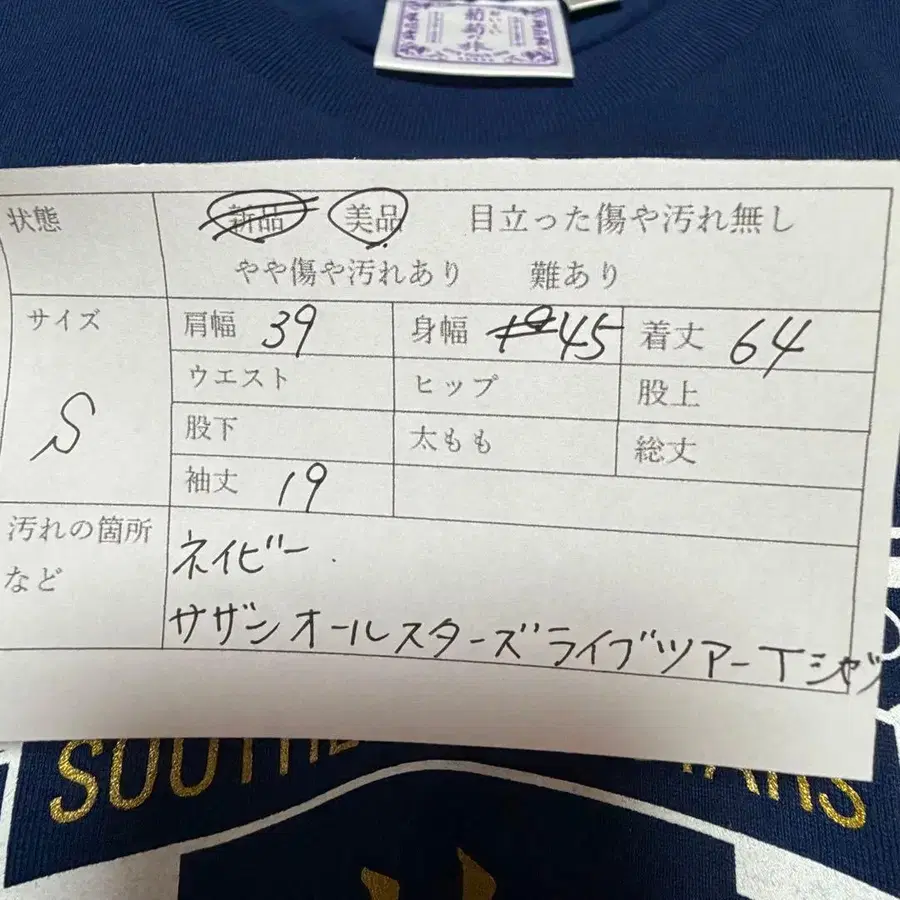 葡萄の旅
状態 新品 美品 目立った傷や汚れ無し
やや傷や汚れあり 難あり
サイズ 肩幅 39 身幅 45 着丈 64
S ウエスト ヒップ 股上
股下 太もも 総丈
袖丈 19
汚れの箇所 ネイビー
など サザンオールスターズライブツアーTシャツ